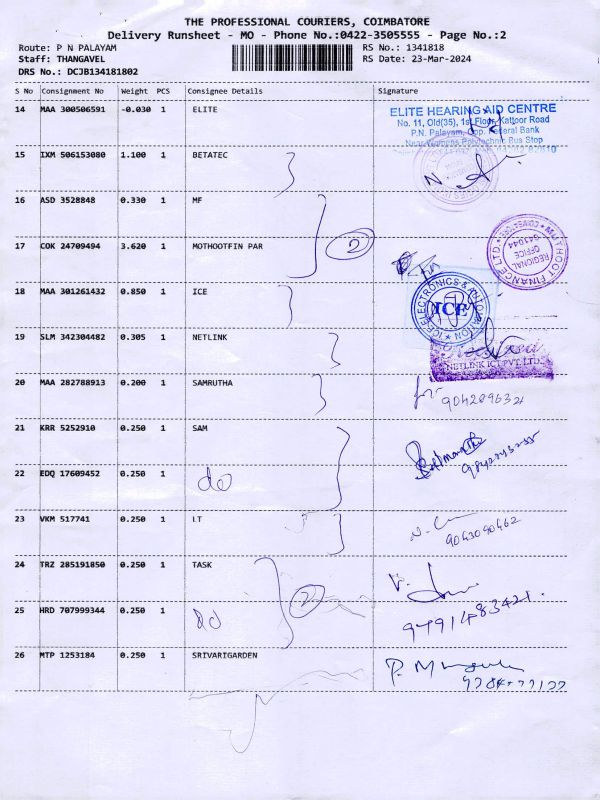 THE PROFESSIONAL COURIERS, COIMBATORE
Delivery Runsheet - MO - Phone No.:0422-3505555 - Page No.:2
Route: P N PALAYAM RS No.: 1341818
Staff: THANGAVEL RS Date: 23-Mar-2024
DRS No.: DCJB134181802
S No Consignment No Weight PCS Consignee Details Signature
14 MAA 300506591 -0.030 1 ELITE
ELITE HEARING AID CENTRE
No. 11, Old(35), 1st Floor, Kattoor Road
P.N. Palayam, Opp. Federal Bank
Near Womens Polytechnic Bus Stop
15 IXM 506153080 1.100 1 BETATEC
16 ASD 3528848 0.330 1 MF
17 COK 24709494 3.620 1 MOTHOOTFIN PAR 2
MUTHOOT FINANCE LTD.
REGIONAL OFFICE
641044
18 MAA 301261432 0.850 1 ICE
ICE ELECTRONICS & AUTOMATION
ICE
19 SLM 342304482 0.305 1 NETLINK
NETLINK ICT PVT. LTD.
20 MAA 282788913 0.200 1 SAMRUTHA
for
21 KRR 5252910 0.250 1 SAM
22 EDQ 17609452 0.250 1 do
23 VKM 517741 0.250 1 LT
9043090462
24 TRZ 285191850 0.250 1 TASK 2
25 HRD 707999344 0.250 1 do
9791483421
26 MTP 1253184 0.250 1 SRIVARIGARDEN